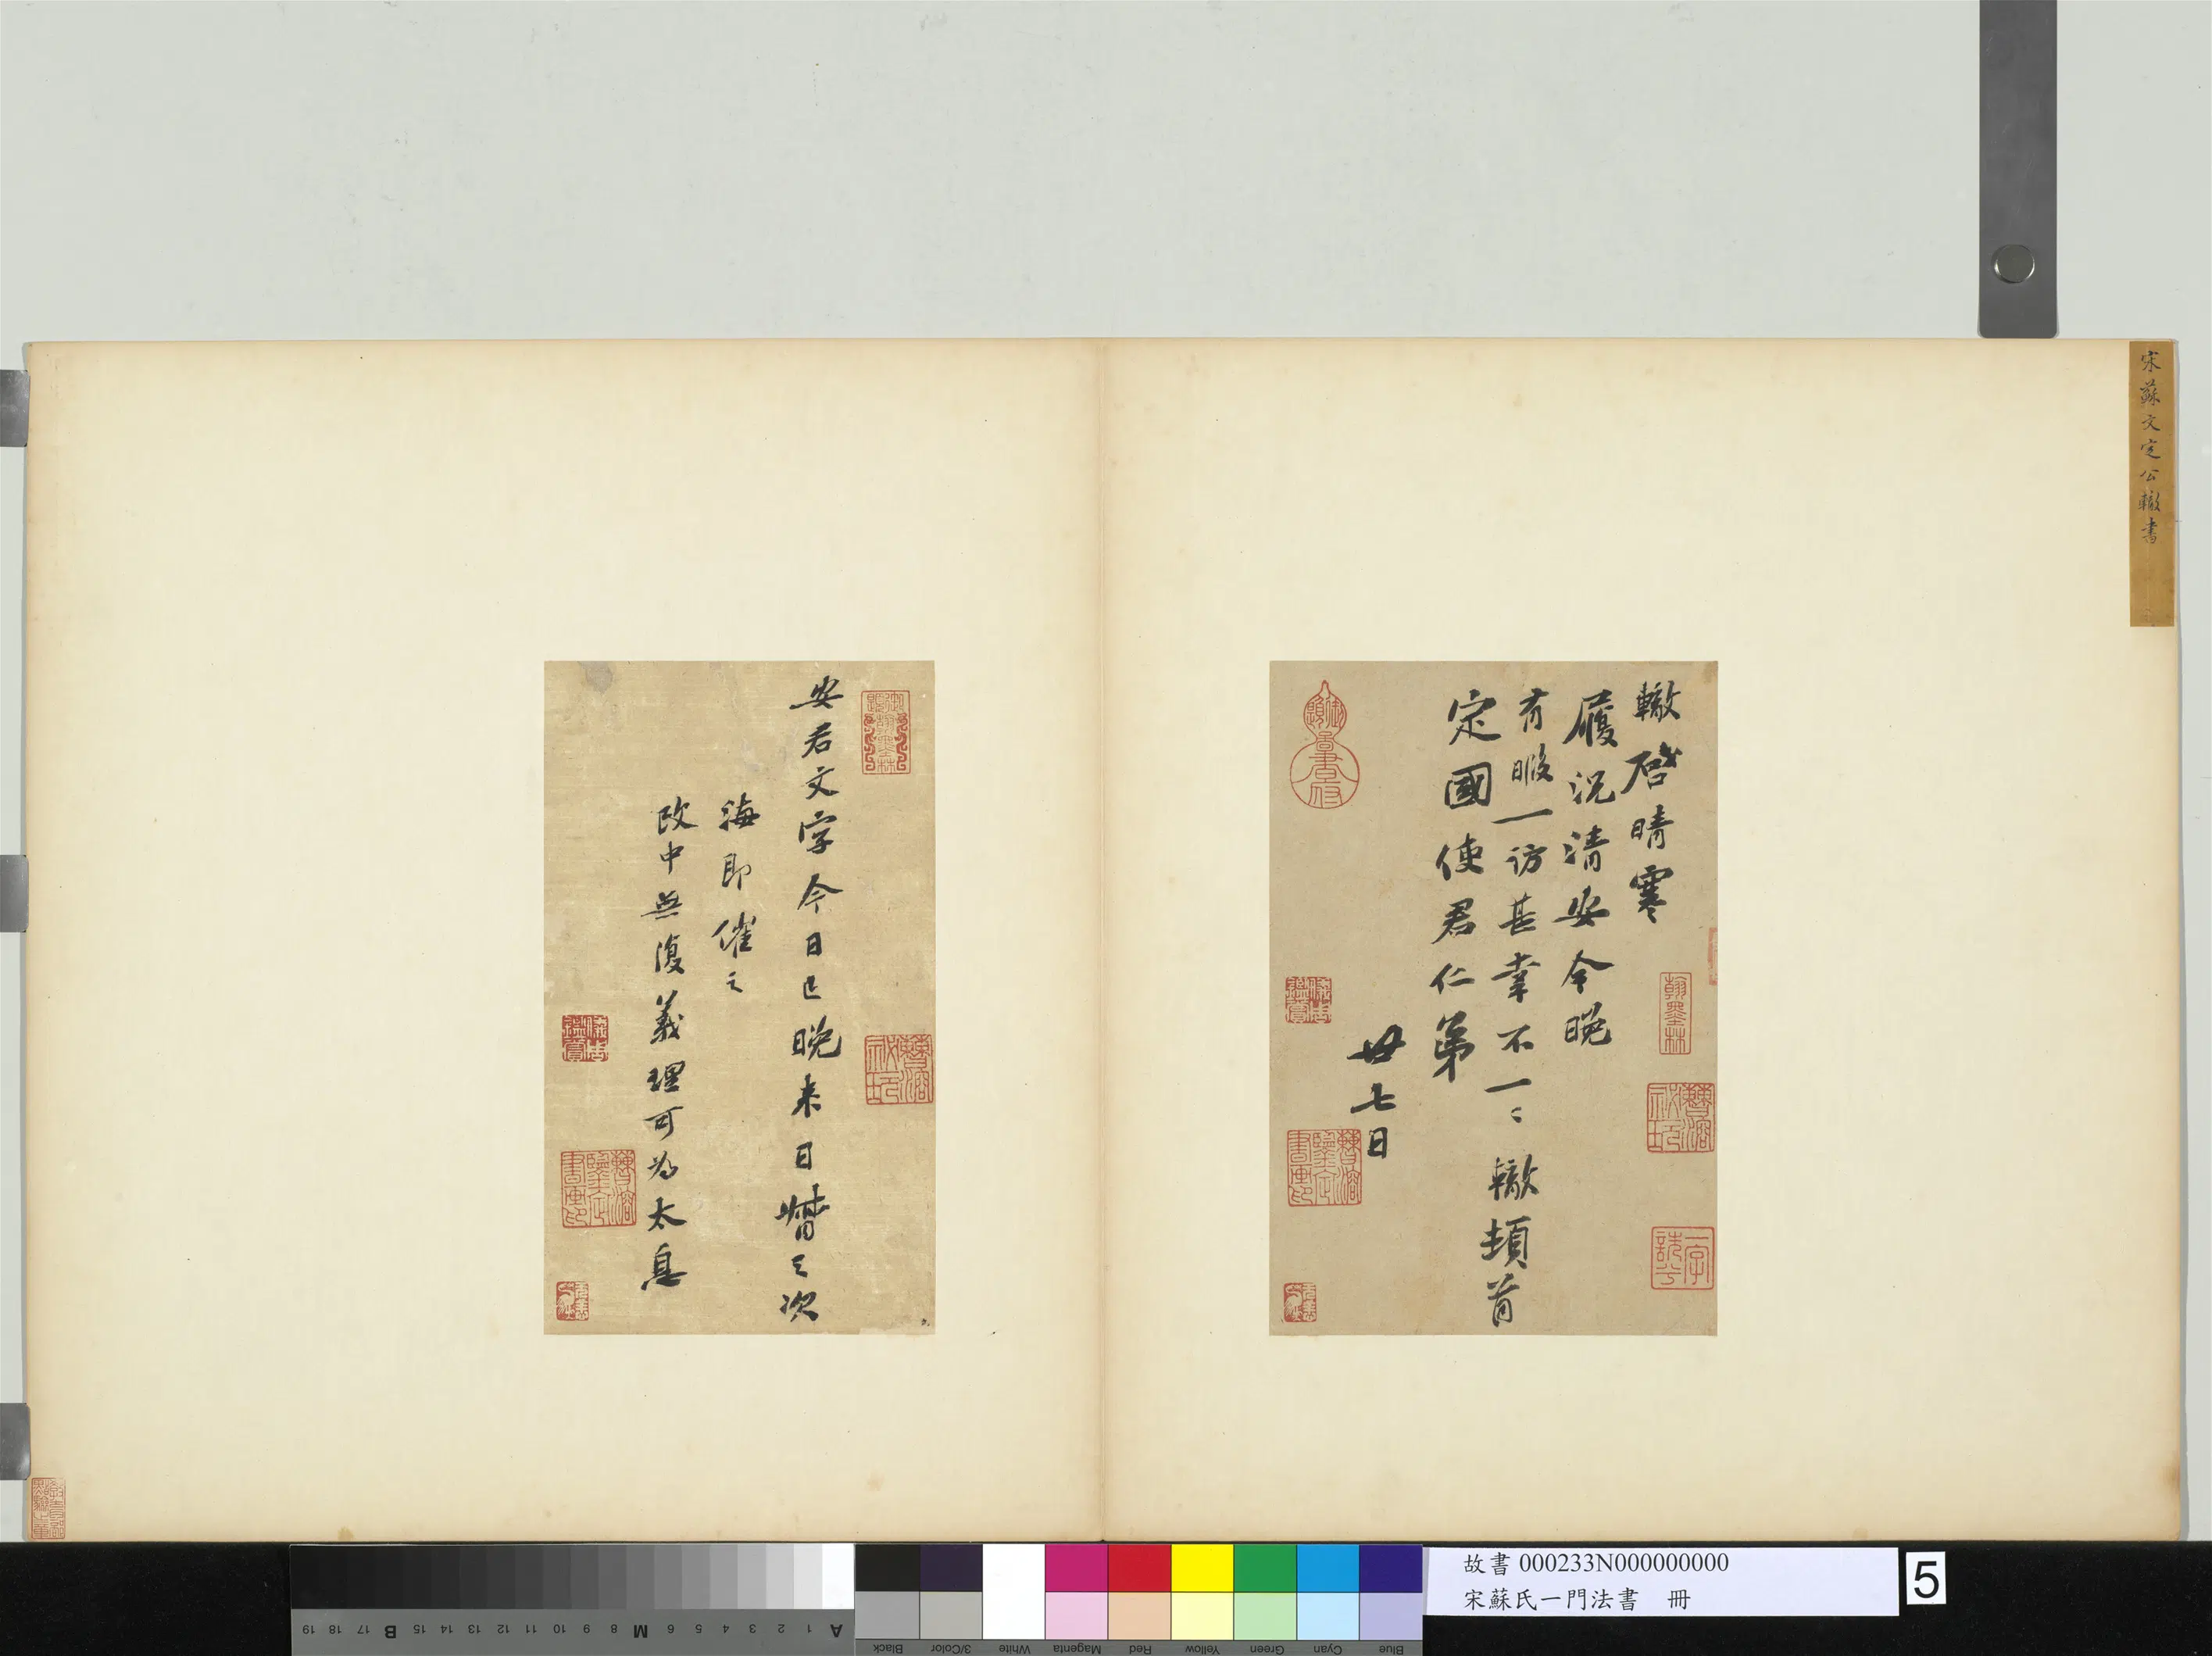 宋蘇文定公轍書
轍啓晴寒
履況清安今晚
有暇一訪甚幸不一〻轍頓首
定國使君仁弟
廿七日
翰墨林
安君文字今日已晚来日
海即催之
政中無復義理可為太息
故書 000233N000000000
宋蘇氏一門法書 冊
5
A 1 2 3 4 5 6 7 8 M 9 10 11 12 13 14 15 B 17 18 19
Blue Cyan Green Yellow Red Magenta White 3/Color Black